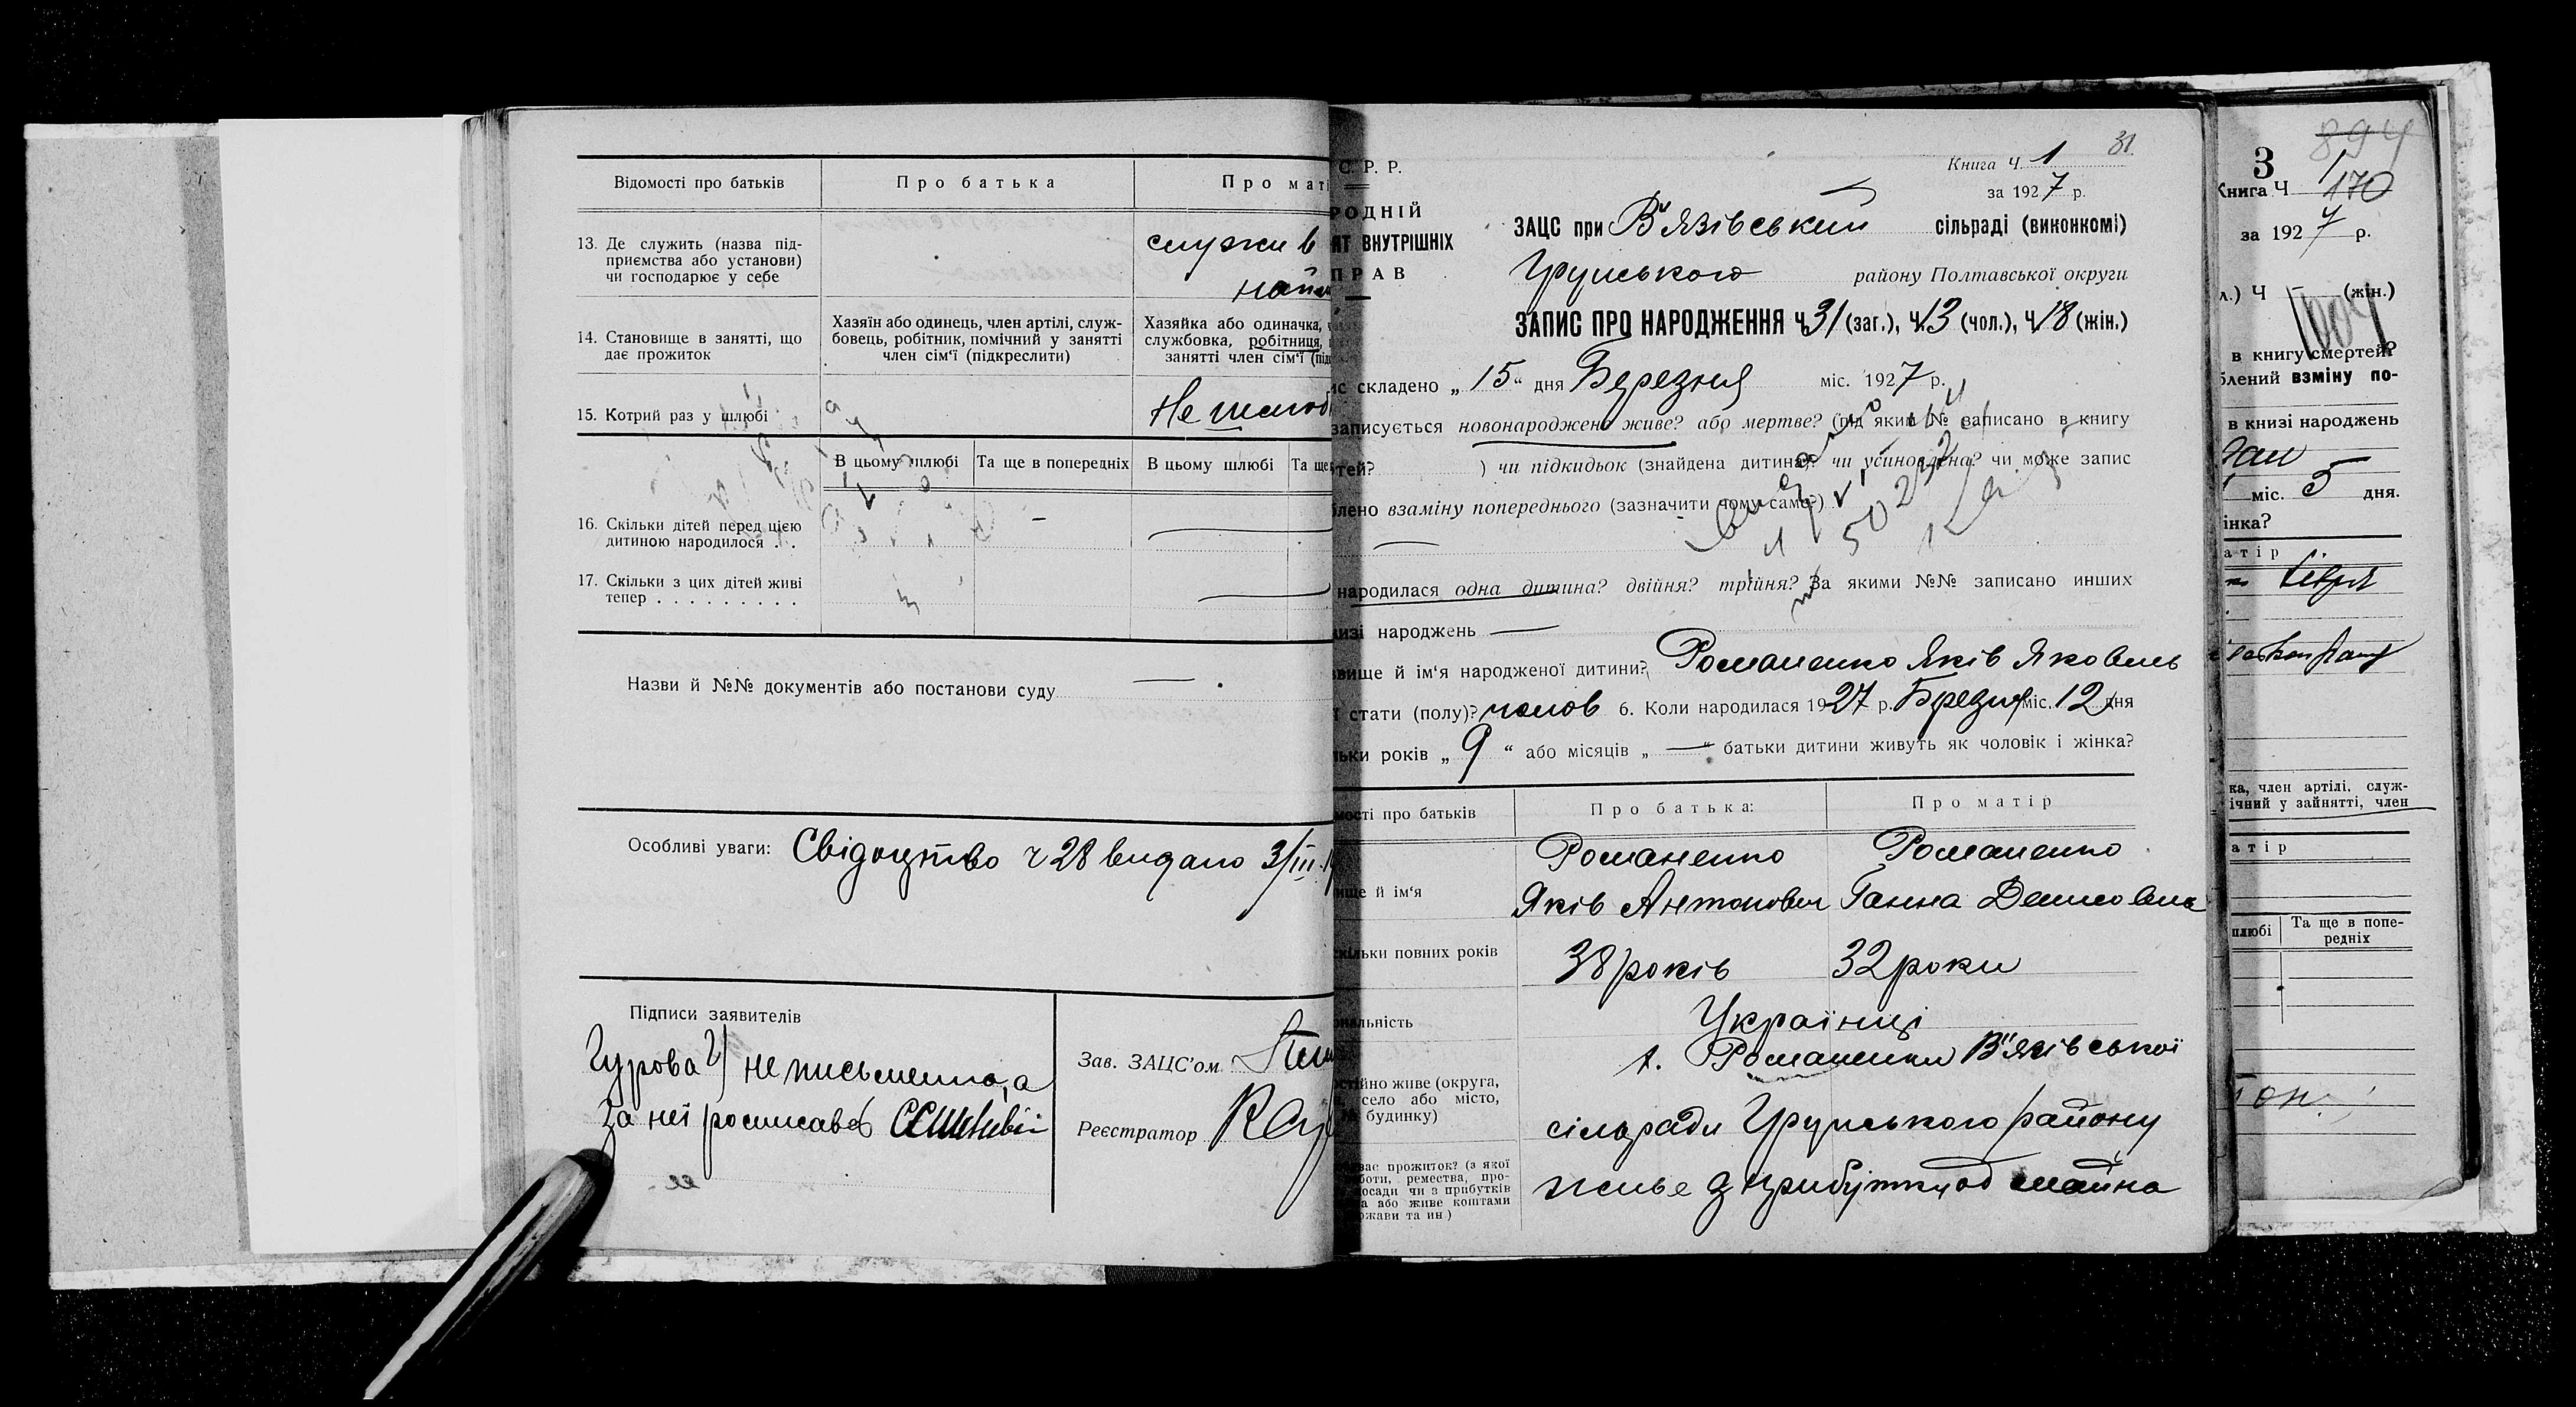 Відомості про батьків
Про батька
Про маті
13. Де служить (назва під-
приємства або установи)
чи господарює у себе
служи в
най
14. Становище в занятті, що
дає прожиток
Хазяїн або одинець, член артілі, служ-
бовець, робітник, помічний у занятті
член сім'ї (підкреслити)
Хазяйка або одиначка,
службовка, робітниця,
занятті член сім'ї (під
15. Котрий раз у шлюбі
Не шлюб
В цьому шлюбі
Та ще в попередніх
В цьому шлюбі
Та ще
16. Скільки дітей перед цією
дитиною народилося . .
17. Скільки з цих дітей живі
тепер . . . . . . . . .
Назви й №№ документів або постанови суду
Особливі уваги: Свідоцтво ч 28 видано 3/III.
Підписи заявителів
Гурова не письменна, а
за неї росписавсь
Зав. ЗАЦС'ом
Реєстратор
С. Р. Р.
РОДНІЙ
ЯТ ВНУТРІШНІХ
ПРАВ
31
Книга Ч. 1
за 1927 р.
ЗАЦС при В'язівський сільраді (виконкомі)
Грунського району Полтавської округи
ЗАПИС ПРО НАРОДЖЕННЯ Ч. 31 (заг.), Ч. 13 (чол.), Ч. 18 (жін.)
ис складено „ 15 " дня Березня міс. 1927 р.
записується новонароджене живе? або мертве? (під яким № записано в книгу
тей? ) чи підкидьок (знайдена дитина)? чи усиновлена? чи може запис
блено взаміну попереднього (зазначити чому саме?)
народилася одна дитина? двійня? трійня? За якими №№ записано инших
изі народжень —
вище й ім'я народженої дитини? Романенко Яків Яковець
ї стати (полу)? чолов 6. Коли народилася 1927 р. Березня міс. 12 дня
льки років „ 9 " або місяців „ — " батьки дитини живуть як чоловік і жінка?
мості про батьків
Про батька:
Про матір
ище й ім'я
Романенко
Яків Антонович
Романенко
Ганна Денисовна
скільки повних років
38 років
32 роки
ональність
Українці
стійно живе (округа,
село або місто,
будинку)
х. Романенки В'язівської
сільради Грунського району
ває прожиток? (з якої
боти, ремества, про-
осади чи з прибутків
а або живе коштами
ржави та ин)
живе з прибутку од майна
894
3
Книга Ч 1
170
за 1927 р.
л.) Ч — (жін.)
в книгу смертей?
блений взміну по-
в книзі народжень
міс. 5 дня.
інка?
атір
ка, член артілі, служ-
ічний у зайнятті, член
атір
шлюбі
Та ще в попе-
редніх